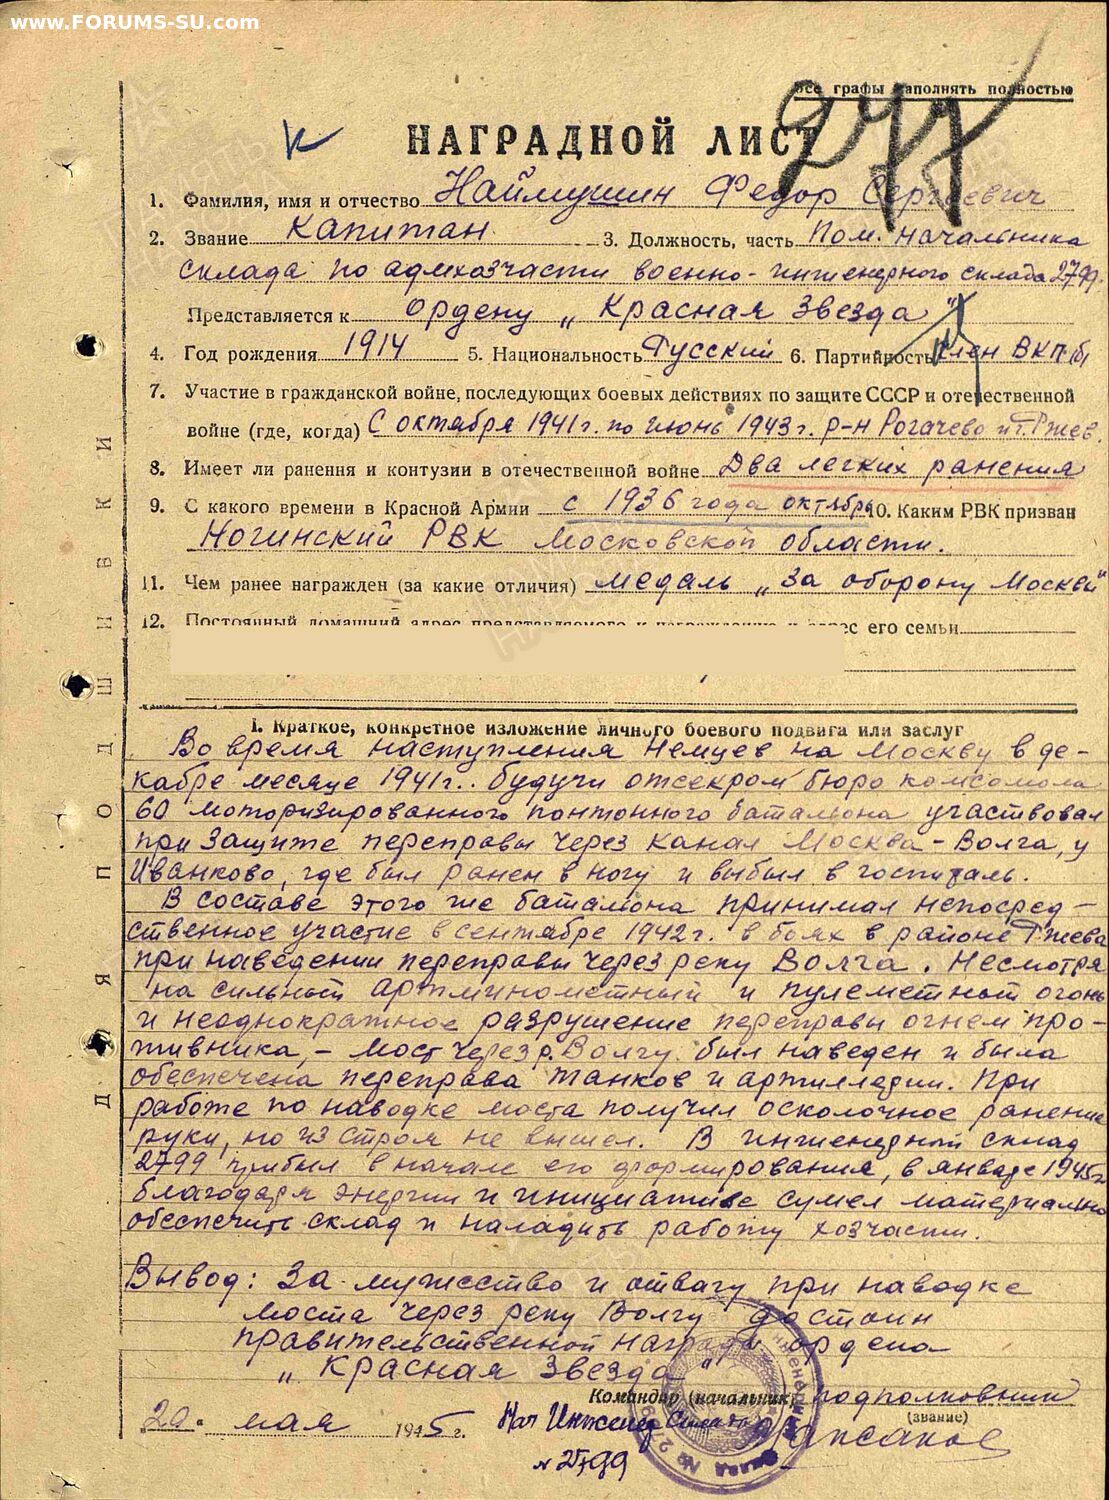 www.FORUMS-SU.com
Все графы заполнять полностью
К
277
НАГРАДНОЙ ЛИСТ
1. Фамилия, имя и отчество Наймушин Федор Сергеевич
2. Звание Капитан 3. Должность, часть Пом. начальника
склада по адмхозчасти военно-инженерного склада 2799.
Представляется к ордену „Красная Звезда"
4. Год рождения 1914 5. Национальность Русский 6. Партийность член ВКП(б)
7. Участие в гражданской войне, последующих боевых действиях по защите СССР и отечественной
войне (где, когда) С октября 1941 г. по июнь 1943 г. р-н Рогачево и г. Ржев.
8. Имеет ли ранения и контузии в отечественной войне Два легких ранения
9. С какого времени в Красной Армии с 1936 года октябрь 10. Каким РВК призван
Ногинский РВК Московской области.
11. Чем ранее награжден (за какие отличия) медаль „За оборону Москвы"
12. Постоянный домашний адрес представляемого к награждению и адрес его семьи
ДЛЯ ПОДШИВКИ
I. Краткое, конкретное изложение личного боевого подвига или заслуг
Во время наступления немцев на Москву в де-
кабре месяце 1941 г. будучи отсекром бюро комсомола
60 моторизированного понтонного батальона участвовал
при защите переправы через канал Москва-Волга, у
Иванково, где был ранен в ногу и выбыл в госпиталь.
В составе этого же батальона принимал непосред-
ственное участие в сентябре 1942 г. в боях в районе Ржева
при наведении переправы через реку Волга. Несмотря
на сильный артминометный и пулеметный огонь
и неоднократное разрушение переправы огнем про-
тивника, - мост через р. Волгу был наведен и была
обеспечена переправа танков и артиллерии. При
работе по наводке моста получил осколочное ранение
руки, но из строя не вышел. В инженерный склад
2799 прибыл в начале его формирования, в январе 1945 г.
благодаря энергии и инициативе сумел материально
обеспечить склад и наладить работу хозчасти.
Вывод: За мужество и отвагу при наводке
моста через реку Волгу достоин
правительственной награды ордена
„Красная Звезда"
Командир (начальник) подполковник
(звание)
20. мая 1945 г.
Нач Инженер Склада
№ 2799